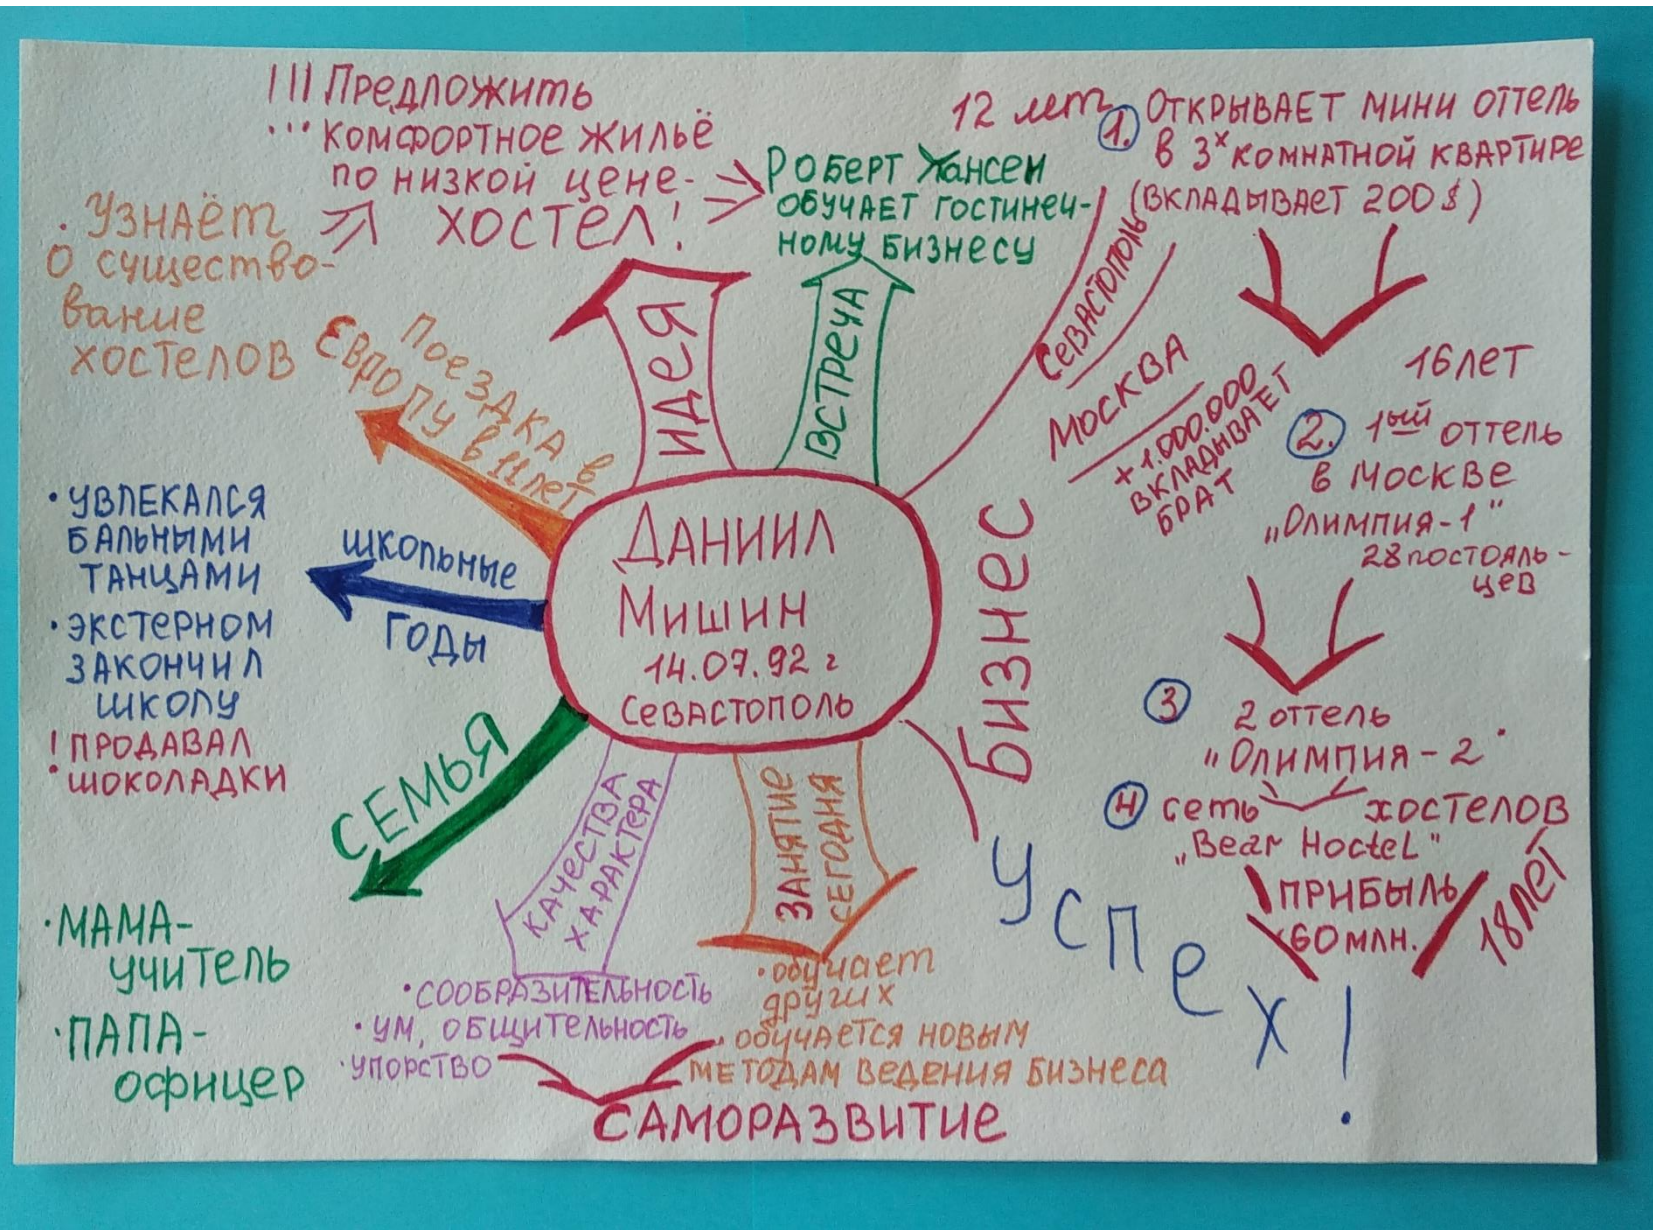 !!! Предложить
комфортное жильё
по низкой цене-
ХОСТЕЛ!
Роберт Хансен
обучает гостинеч-
ному бизнесу
12 лет
1. Открывает мини оттель
в 3х комнатной квартире
(вкладывает 200$)
Севастополь
Москва
+1.000.000
вкладывает
брат
16 лет
2. 1ый оттель
в Москве
„Олимпия-1"
28 постояль-
цев
3 2 оттель
„Олимпия-2"
4 сеть хостелов
„Bear Hoctel"
прибыль
60 млн.
18 лет
· Узнаёт
о существо-
вание
хостелов
Поездка в
Европу в 11 лет
Идея
Встреча
Бизнес
Успех!
Даниил
Мишин
14.07.92 г
Севастополь
Школьные
годы
· увлекался
бальными
танцами
· экстерном
закончил
школу
! продавал
шоколадки
Семья
· мама-
учитель
· папа-
офицер
Качества
характера
· сообразительность
· ум, общительность
· упорство
Занятие
сегодня
· обучает
других
· обучается новым
методам ведения бизнеса
Саморазвитие